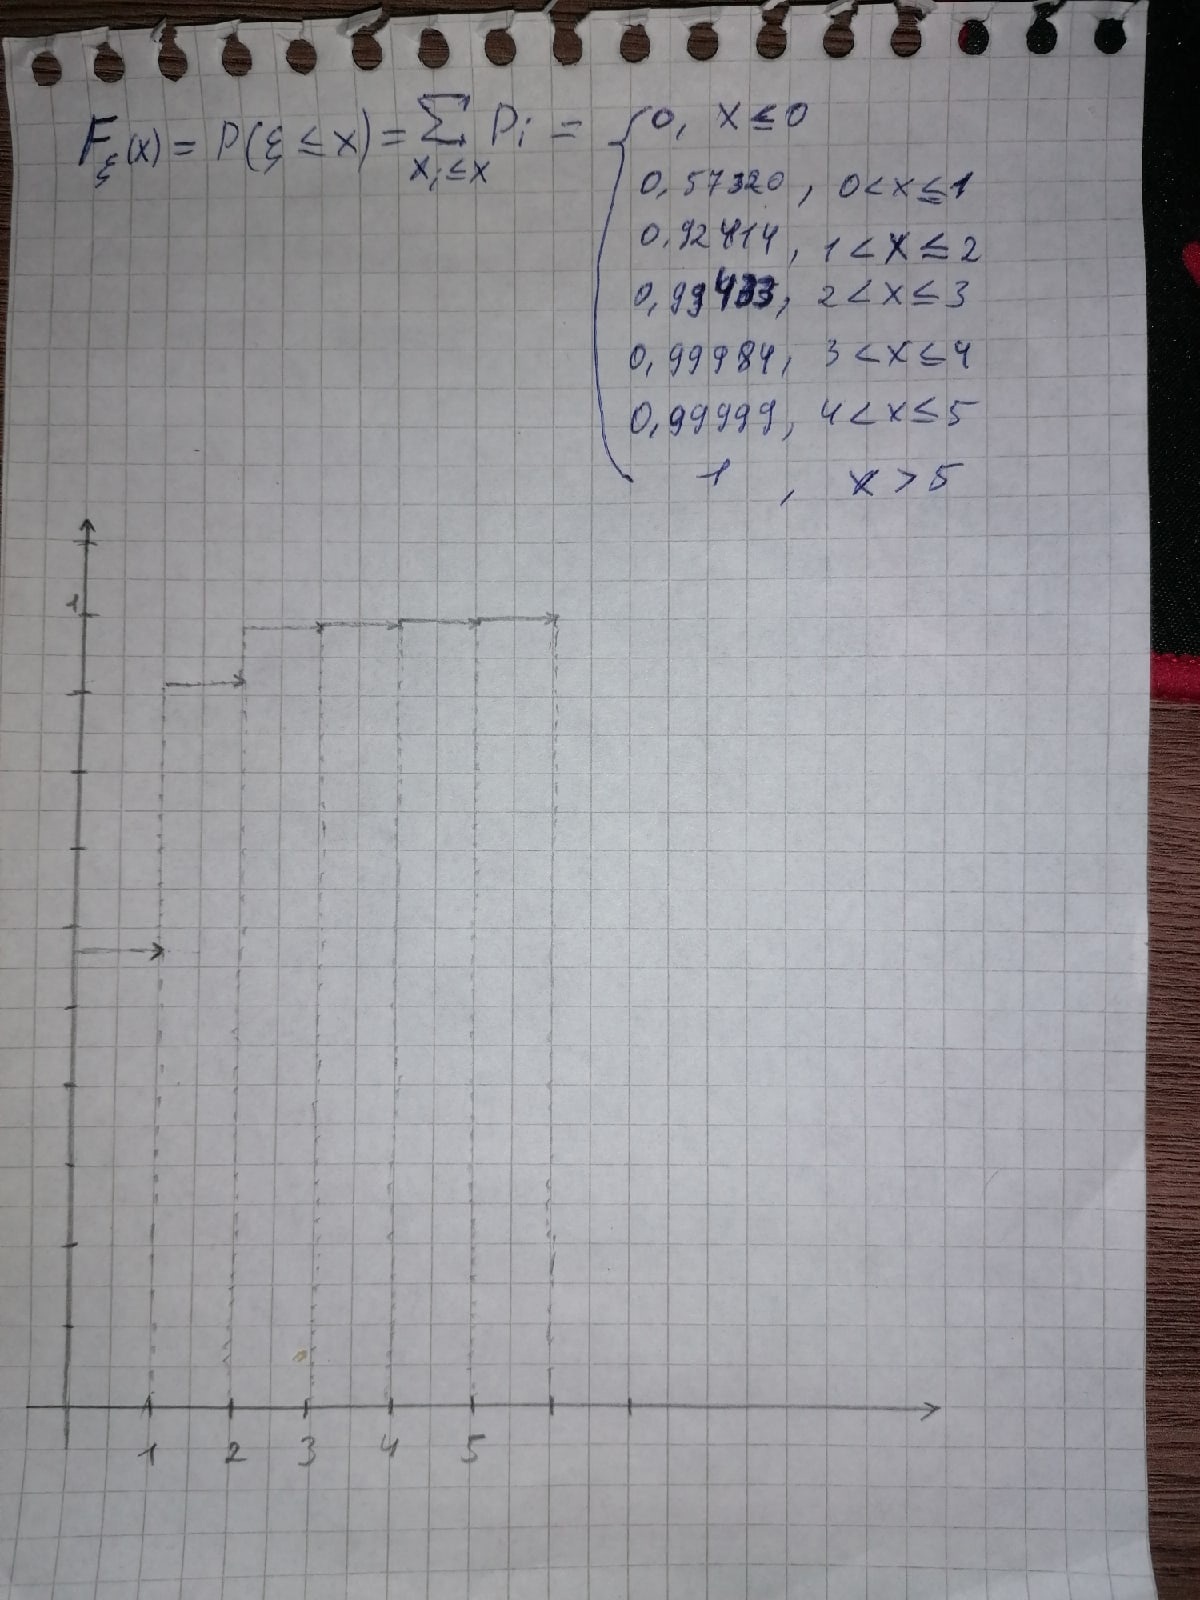 Fξ(x) = P(ξ ≤ x) = ∑ Pi = { 0, x ≤ 0
xi ≤ x
0,57320, 0 < x ≤ 1
0,92414, 1 < x ≤ 2
0,99433, 2 < x ≤ 3
0,99984, 3 < x ≤ 4
0,99999, 4 < x ≤ 5
1, x > 5
1
1 2 3 4 5